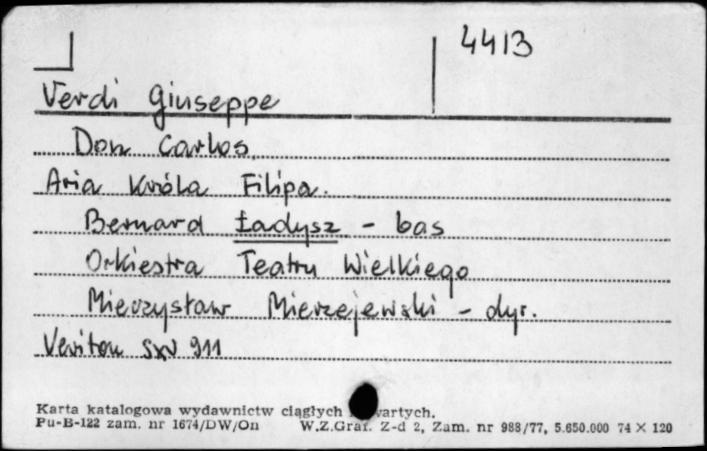 4413
Verdi Giuseppe
Don Carlos
Aria Króla Filipa.
Bernard Ładysz - bas
Orkiestra Teatru Wielkiego
Mieczysław Mierzejewski - dyr.
Veriton SXV 911
Karta katalogowa wydawnictw ciągłych wartych.
Pu-B-122 zam. nr 1674/DW/On W.Z.Graf. Z-d 2, Zam. nr 988/77, 5.650.000 74 X 120